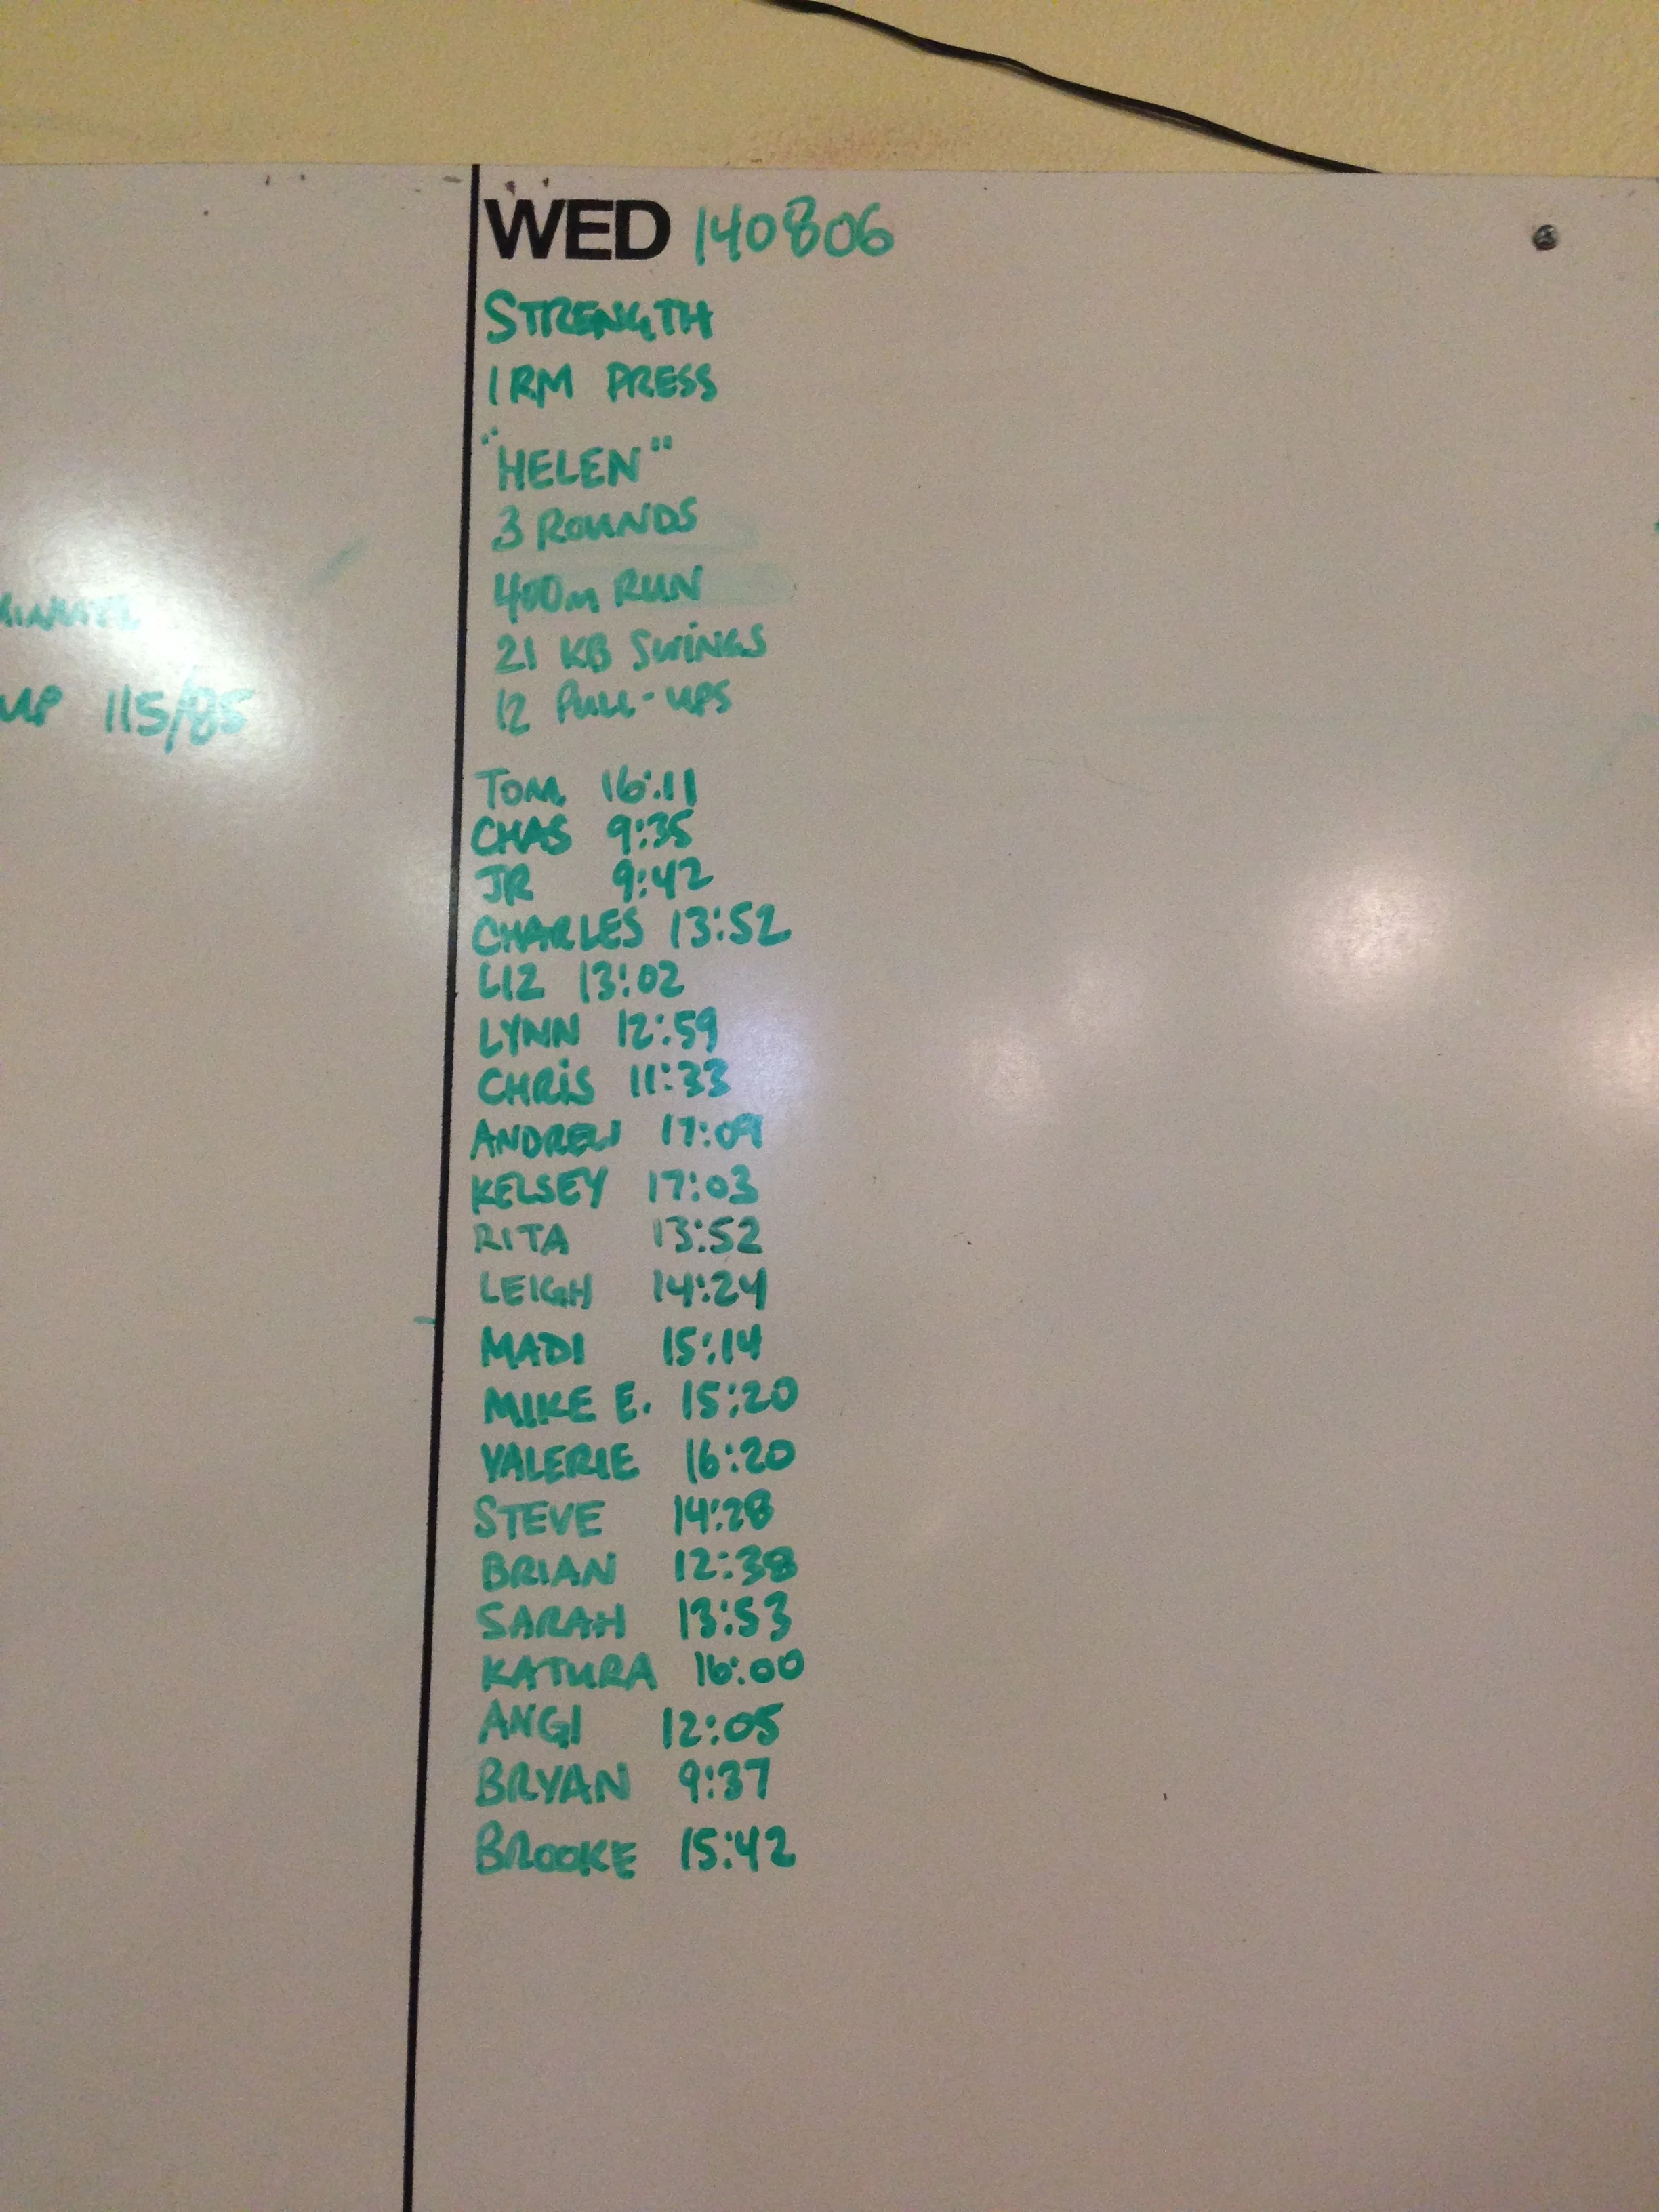 WED 140806
STRENGTH
1 RM PRESS
"HELEN"
3 ROUNDS
400m RUN
21 KB SWINGS
12 PULL-UPS
115/85
TOM 16:11
CHAS 9:35
JR 9:42
CHARLES 13:52
LIZ 13:02
LYNN 12:59
CHRIS 11:33
ANDREW 17:09
KELSEY 17:03
RITA 13:52
LEIGH 14:24
MADI 15:14
MIKE E. 15:20
VALERIE 16:20
STEVE 14:28
BRIAN 12:38
SARAH 13:53
KATURA 16:00
ANGI 12:05
BRYAN 9:37
BROOKE 15:42